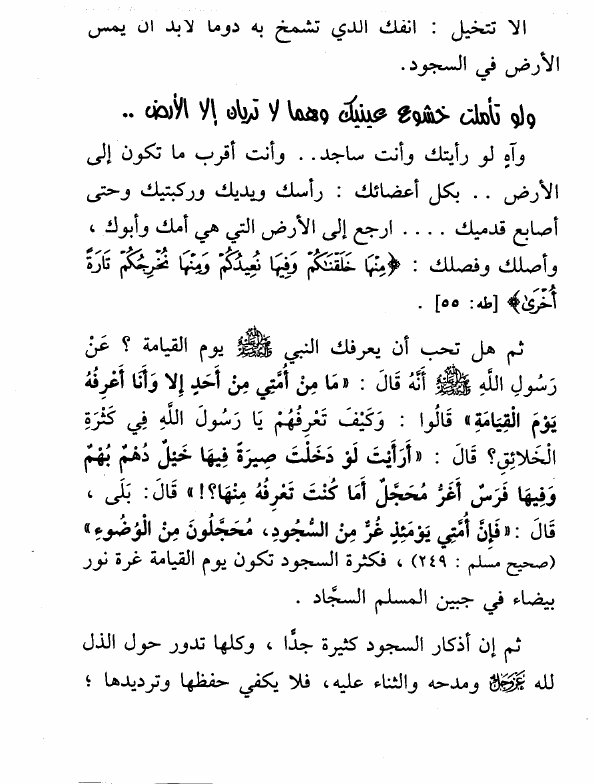 الا تتخيل : انفك الذي تشمخ به دوما لابد ان يمس
الأرض في السجود.
ولو تأملت خشوع عينيك وهما لا تريان إلا الأرض ..
وآهٍ لو رأيتك وأنت ساجد.. وأنت أقرب ما تكون إلى
الأرض .. بكل أعضائك : رأسك ويديك وركبتيك وحتى
أصابع قدميك .... ارجع إلى الأرض التي هي أمك وأبوك ،
وأصلك وفصلك : ﴿مِنْهَا خَلَقْنَاكُمْ وَفِيهَا نُعِيدُكُمْ وَمِنْهَا نُخْرِجُكُمْ تَارَةً
أُخْرَىٰ﴾ [طه: ٥٥] .
ثم هل تحب أن يعرفك النبي ﷺ يوم القيامة ؟ عَنْ
رَسُولِ اللَّهِ ﷺ أَنَّهُ قَالَ : «مَا مِنْ أُمَّتِي مِنْ أَحَدٍ إِلا وَأَنَا أَعْرِفُهُ
يَوْمَ الْقِيَامَةِ» قَالُوا : وَكَيْفَ تَعْرِفُهُمْ يَا رَسُولَ اللَّهِ فِي كَثْرَةِ
الْخَلائِقِ؟ قَالَ : «أَرَأَيْتَ لَوْ دَخَلْتَ صِيرَةً فِيهَا خَيْلٌ دُهْمٌ بُهْمٌ
وَفِيهَا فَرَسٌ أَغَرُّ مُحَجَّلٌ أَمَا كُنْتَ تَعْرِفُهُ مِنْهَا؟!» قَالَ: بَلَى ،
قَالَ :«فَإِنَّ أُمَّتِي يَوْمَئِذٍ غُرٌّ مِنْ السُّجُودِ، مُحَجَّلُونَ مِنْ الْوُضُوءِ»
(صحيح مسلم : ٢٤٩) ، فكثرة السجود تكون يوم القيامة غرة نور
بيضاء في جبين المسلم السجَّاد .
ثم إن أذكار السجود كثيرة جدًّا ، وكلها تدور حول الذل
لله عَزَّ وَجَلَّ ومدحه والثناء عليه، فلا يكفي حفظها وترديدها ؛